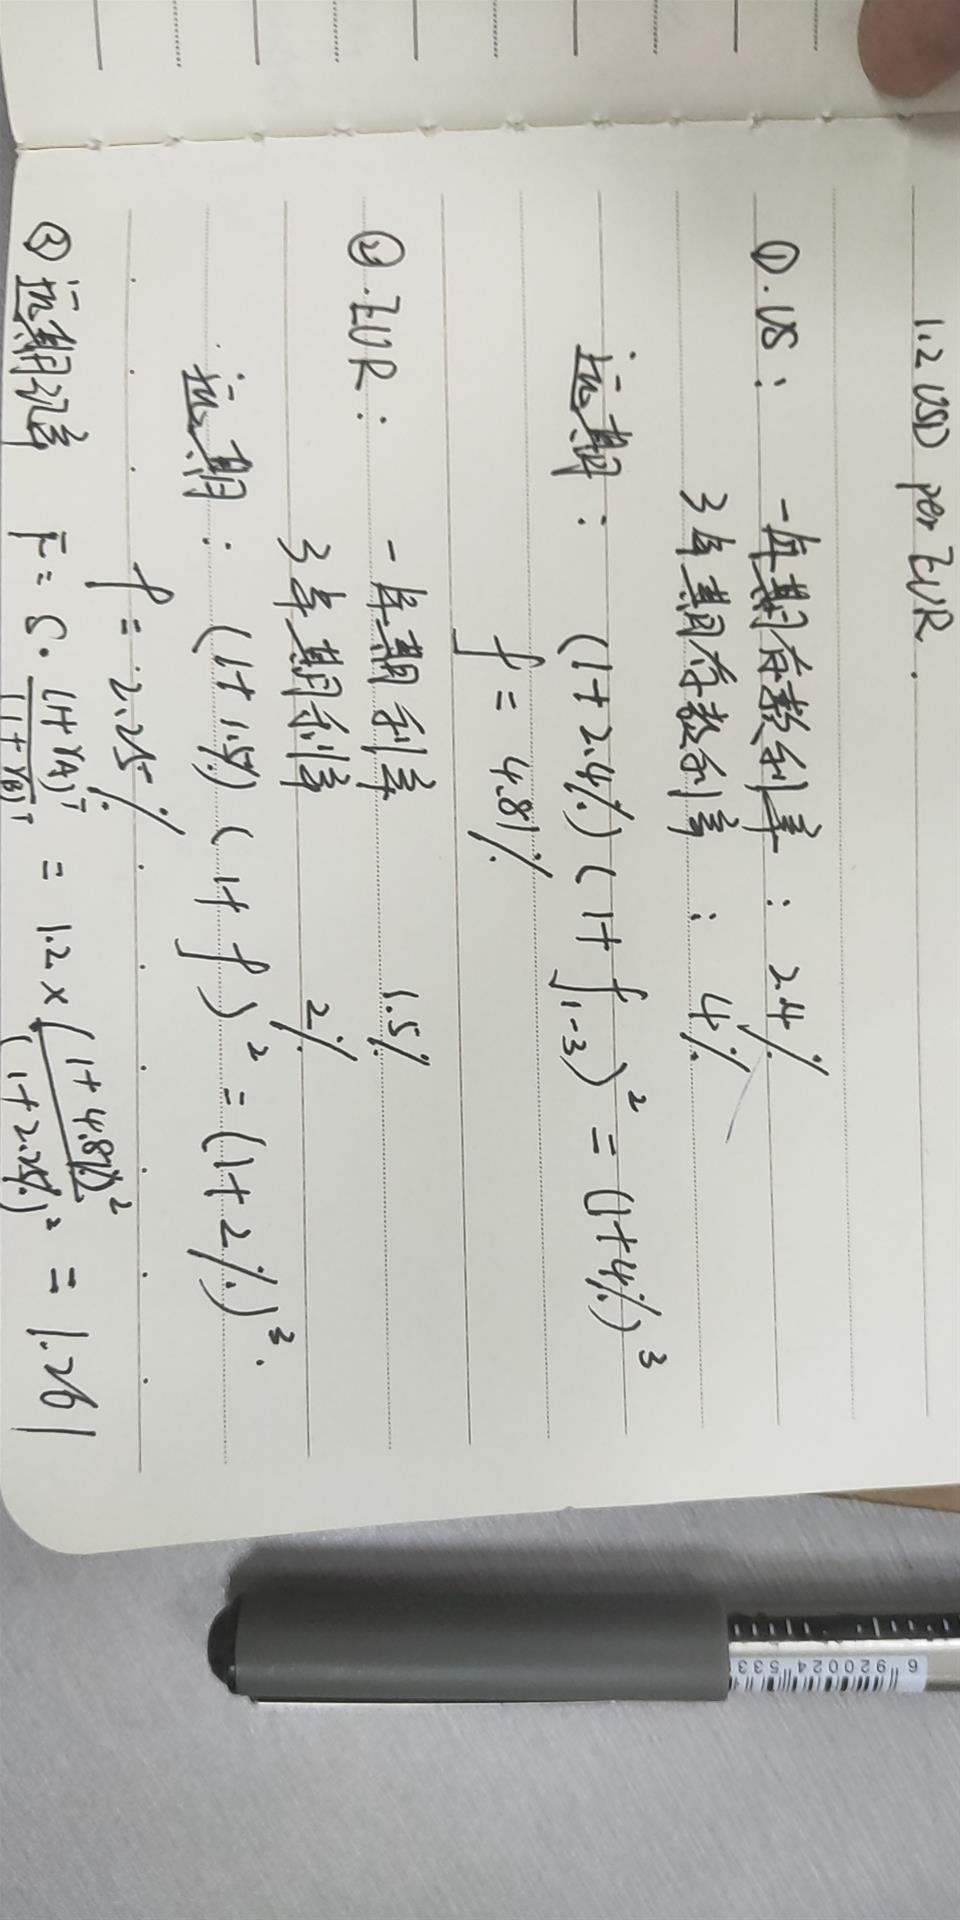 1.2 USD per EUR.
①. US: 一年期存款利率: 2.4%
3年期存款利率: 4%
远期: (1+2.4%)(1+f₁₋₃)² = (1+4%)³
f = 4.81%
②. EUR: 一年期利率 1.5%
3年期利率 2%
远期: (1+1.5%)(1+f)² = (1+2%)³.
f = 2.25%
③ 远期汇率 F = S· (1+rA)ᵀ/(1+rB)ᵀ = 1.2× (1+4.81%)²/(1+2.25%)² = 1.261
6 920024 533